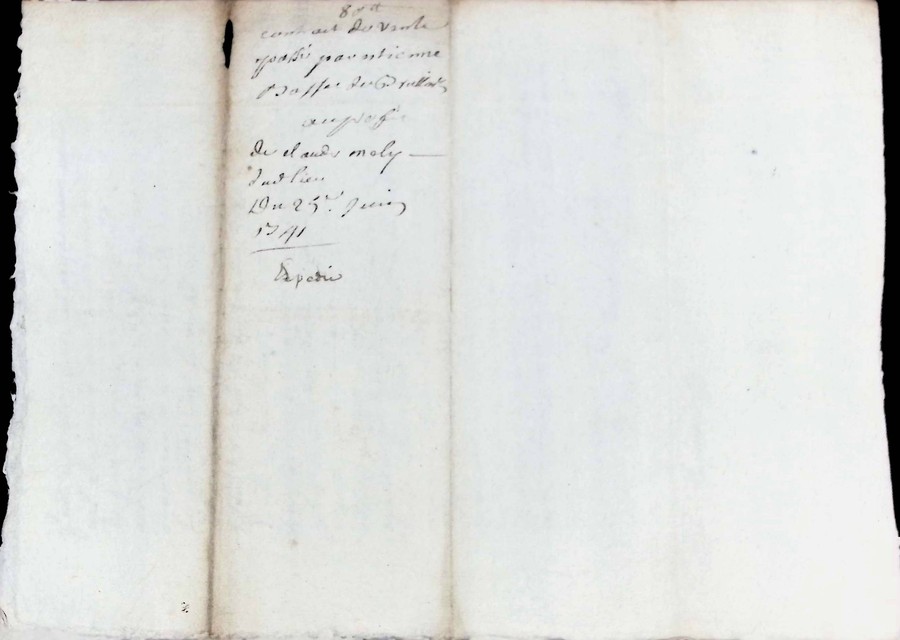 contract de vente
passé par estienne
Basset de
au profit
de claude mely —
dud lieu
Du 25e. Juin
1741
Expedié